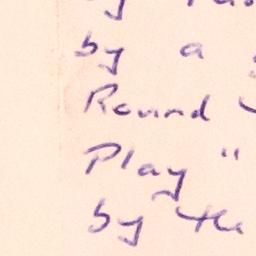 by
by a
Round
Play "
by the